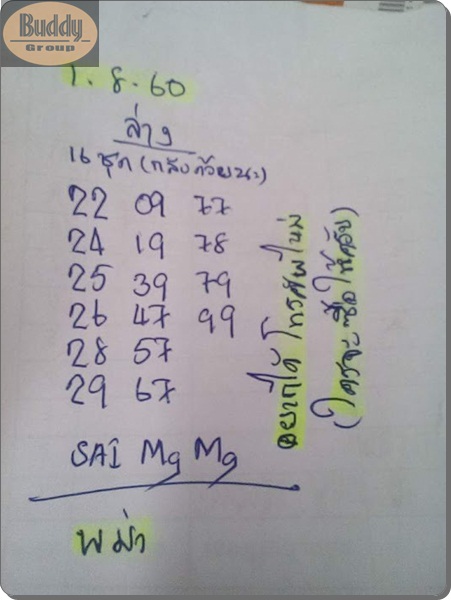 Buddy
Group
1.8.60
ล่าง
16 ชุด (กลับด้วยนะ)
22 09 77
24 19 78
25 39 79
26 47 99
28 57
29 67
SAI Mg Mg
พม่า
อยากได้ โทรศัพใหม่
(ใครจะซื้อให้ครับ)